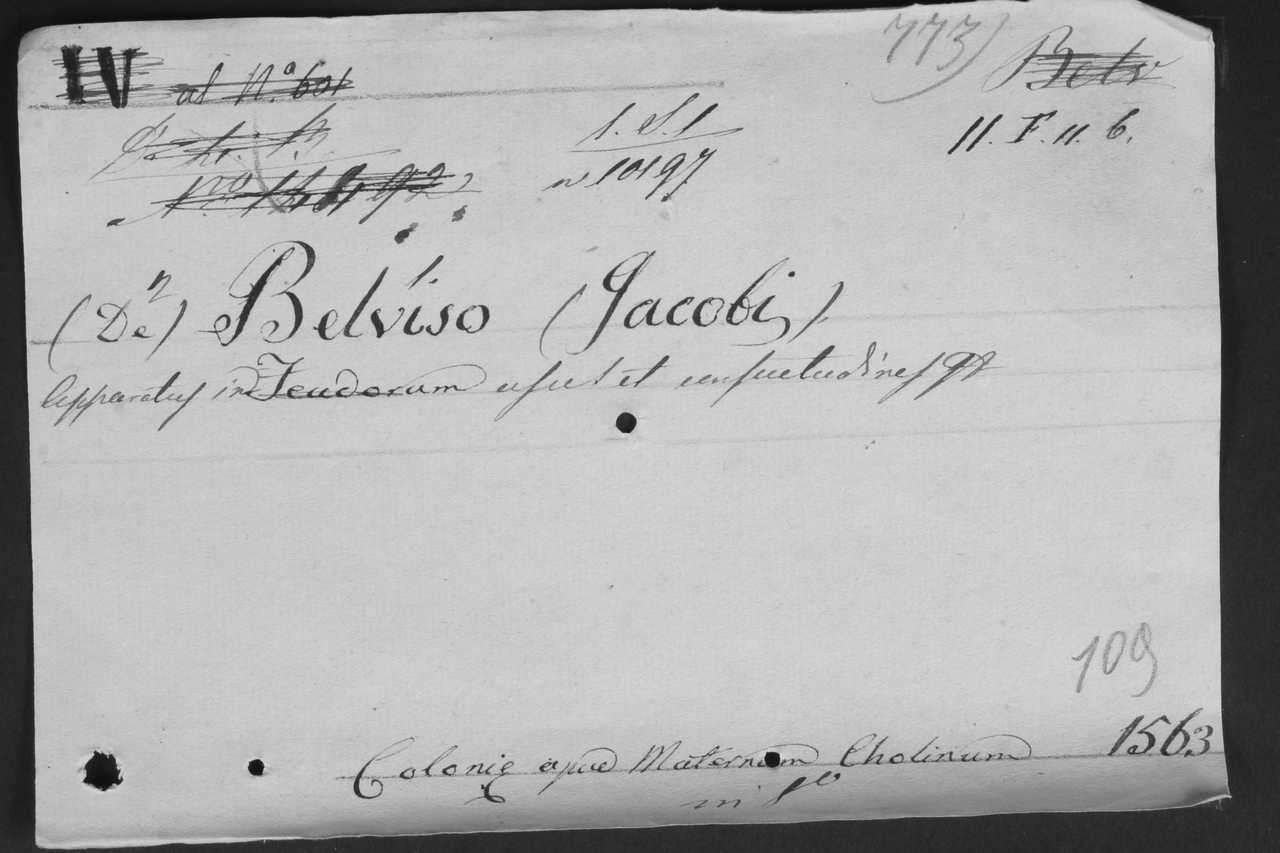 773)
IV al N.º 601 Belv
1. S. 1 11. F. 11. 6.
nº 10197
(De) Belviso (Jacobi).
Apparatus in Feudorum usus et consuetudines &
109
Colonię apud Maternum Cholinum 1563
in 8º